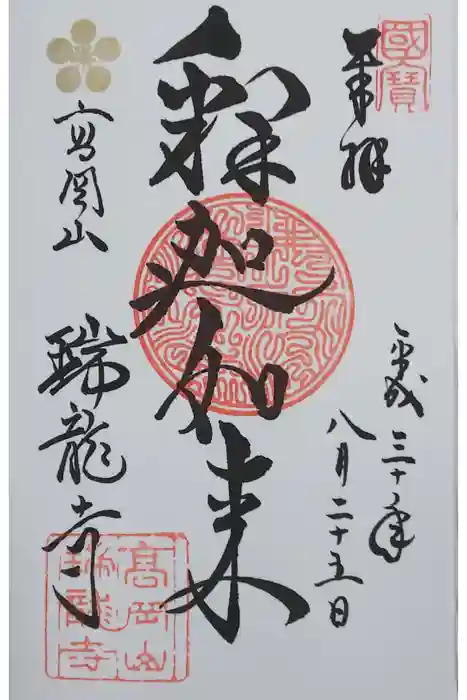 國寶
奉拝
平成三十年
八月二十五日
釋迦如来
高岡山
瑞龍寺
高岡山
瑞龍寺